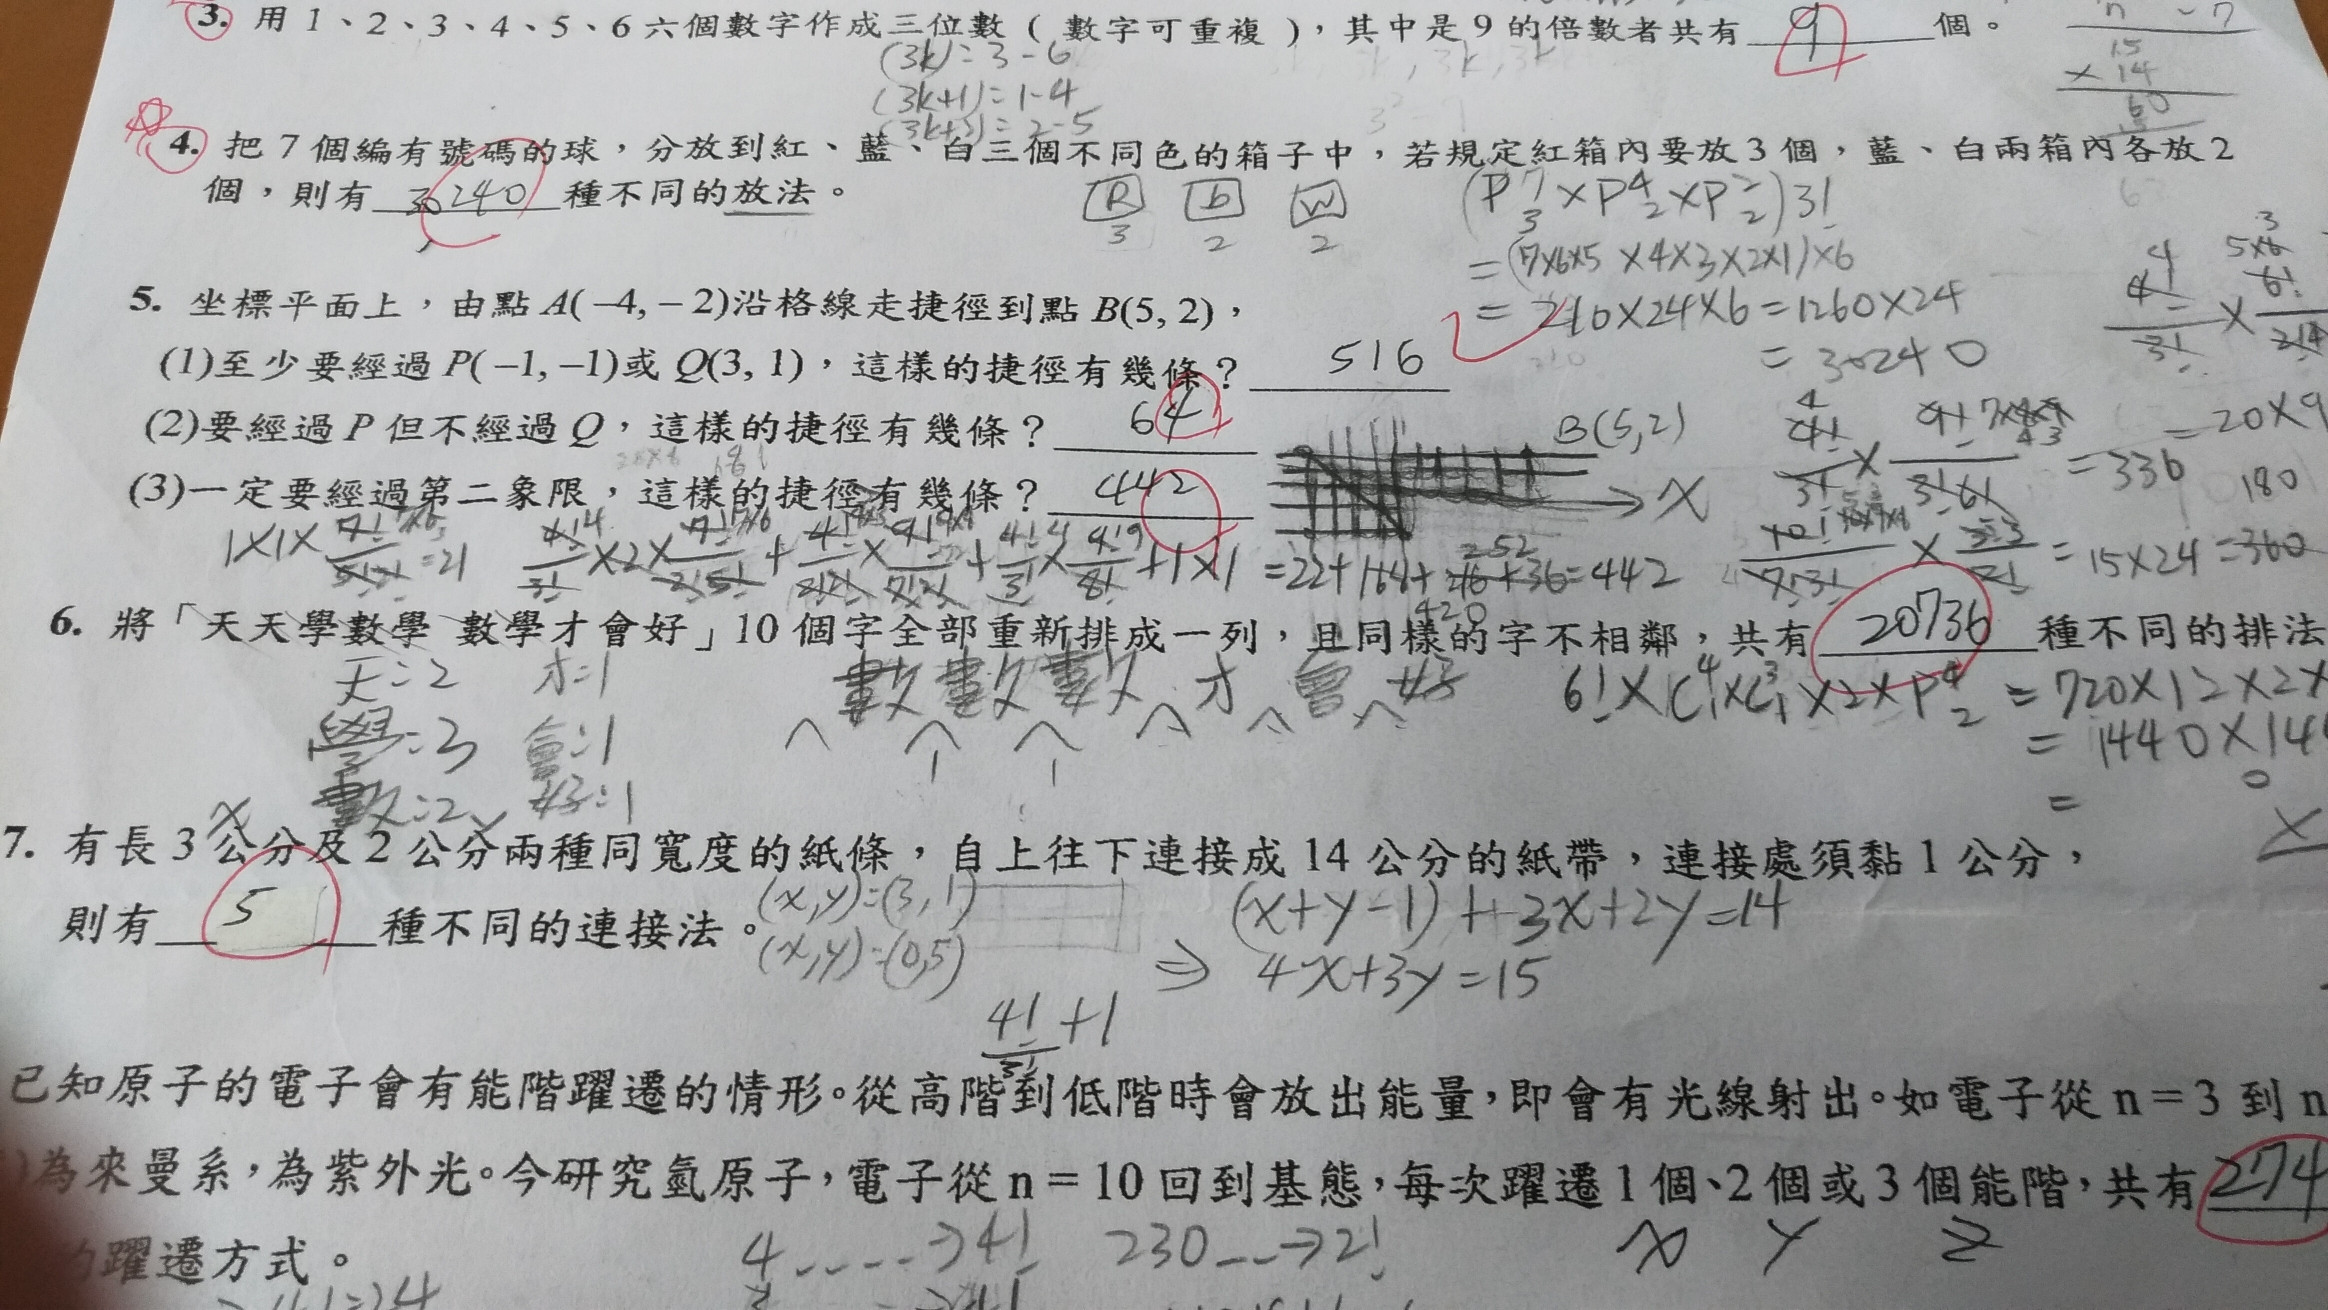 3. 用1、2、3、4、5、6六個數字作成三位數(數字可重複),其中是9的倍數者共有 9 個。
(3k)=3-6
(3k+1)=1-4
(3k+2)=2-5
15
×14
60
4. 把7個編有號碼的球,分放到紅、藍、白三個不同色的箱子中,若規定紅箱內要放3個,藍、白兩箱內各放2
個,則有 30240 種不同的放法。
R b W
3 2 2
(P⁷₃×P⁴₂×P²₂)3!
=(7×6×5×4×3×2×1)×6
=210×24×6=1260×24
=30240
5. 坐標平面上,由點A(−4,−2)沿格線走捷徑到點B(5,2),
(1)至少要經過P(−1,−1)或Q(3,1),這樣的捷徑有幾條? 516
(2)要經過P但不經過Q,這樣的捷徑有幾條? 64
(3)一定要經過第二象限,這樣的捷徑有幾條? 442
B(5,2)
x
=336
=20×9
180
=15×24=360
1×1×7!/5!2!=21
+1×1=22+168+216+36=442
252
420
6. 將「天天學數學 數學才會好」10個字全部重新排成一列,且同樣的字不相鄰,共有 20736 種不同的排法
天=2 才=1
學=3 會=1
數=2 好=1
數 數 數 才 會 好
6!×C⁴₁×C³₁×2×P⁴₂=720×12×2×
=1440×14
=
7. 有長3公分及2公分兩種同寬度的紙條,自上往下連接成14公分的紙帶,連接處須黏1公分,
則有 5 種不同的連接法。
x y
(x,y)=(3,1)
(x,y)=(0,5)
(x+y-1)+3x+2y=14
⇒ 4x+3y=15
4!/3!+1
已知原子的電子會有能階躍遷的情形。從高階到低階時會放出能量,即會有光線射出。如電子從n=3到n
)為來曼系,為紫外光。今研究氫原子,電子從n=10回到基態,每次躍遷1個、2個或3個能階,共有 274
躍遷方式。
4----→4! 230--→2!
x y z